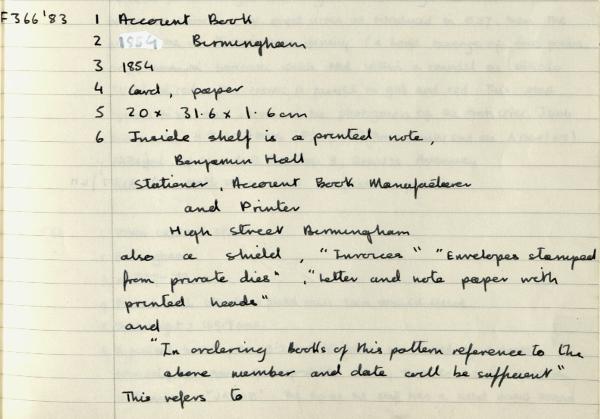 F366'83 1 Account Book
2 1854 Birmingham
3 1854
4 Card, paper
5 20 x 31.6 x 1.6cm
6 Inside shelf is a printed note,
Benjamin Hall
Stationer, Account Book Manufacturer
and Printer
High Street Birmingham
also a shield, "Invoices" "Envelopes stamped
from private dies", "Letter and note paper with
printed heads"
and
"In ordering Books of this pattern reference to the
above number and date will be sufficient"
This refers to